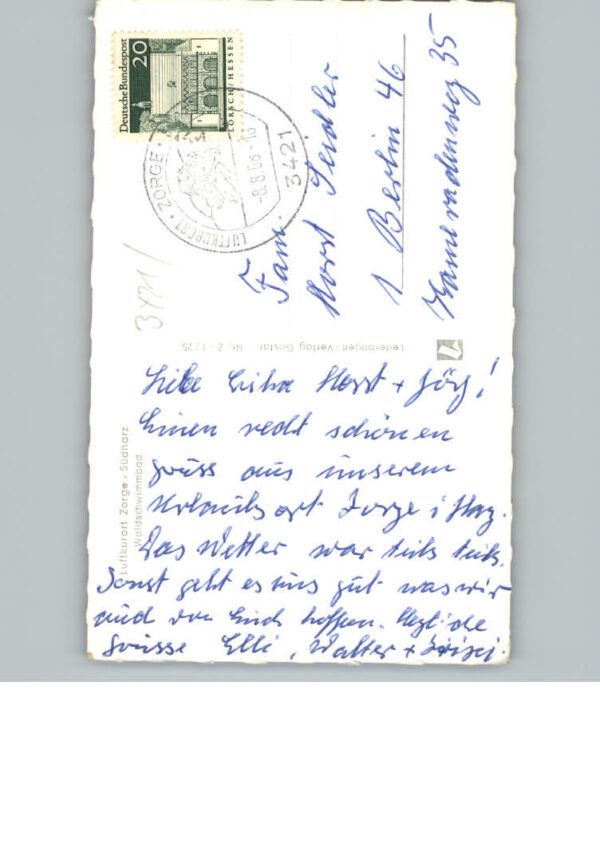 Deutsche Bundespost
20
LORSCH/HESSEN
LUFTKURORT · ZORGE ·
-8.8.68-10
3421
Fam.
Horst Seidler
1 Berlin 46
Kameradenweg 35
Lederbogen-Verlag Goslar Nr. Z-1/25
Luftkurort Zorge / Südharz
Waldschwimmbad
Liebe Erika Horst + Jörg!
Einen recht schönen
Gruss aus unserem
Urlaubsort Zorge i Harz.
Das Wetter war teils teils.
Sonst geht es uns gut was wir
auch von Euch hoffen. Herzliche
Grüsse Elli, Walter +